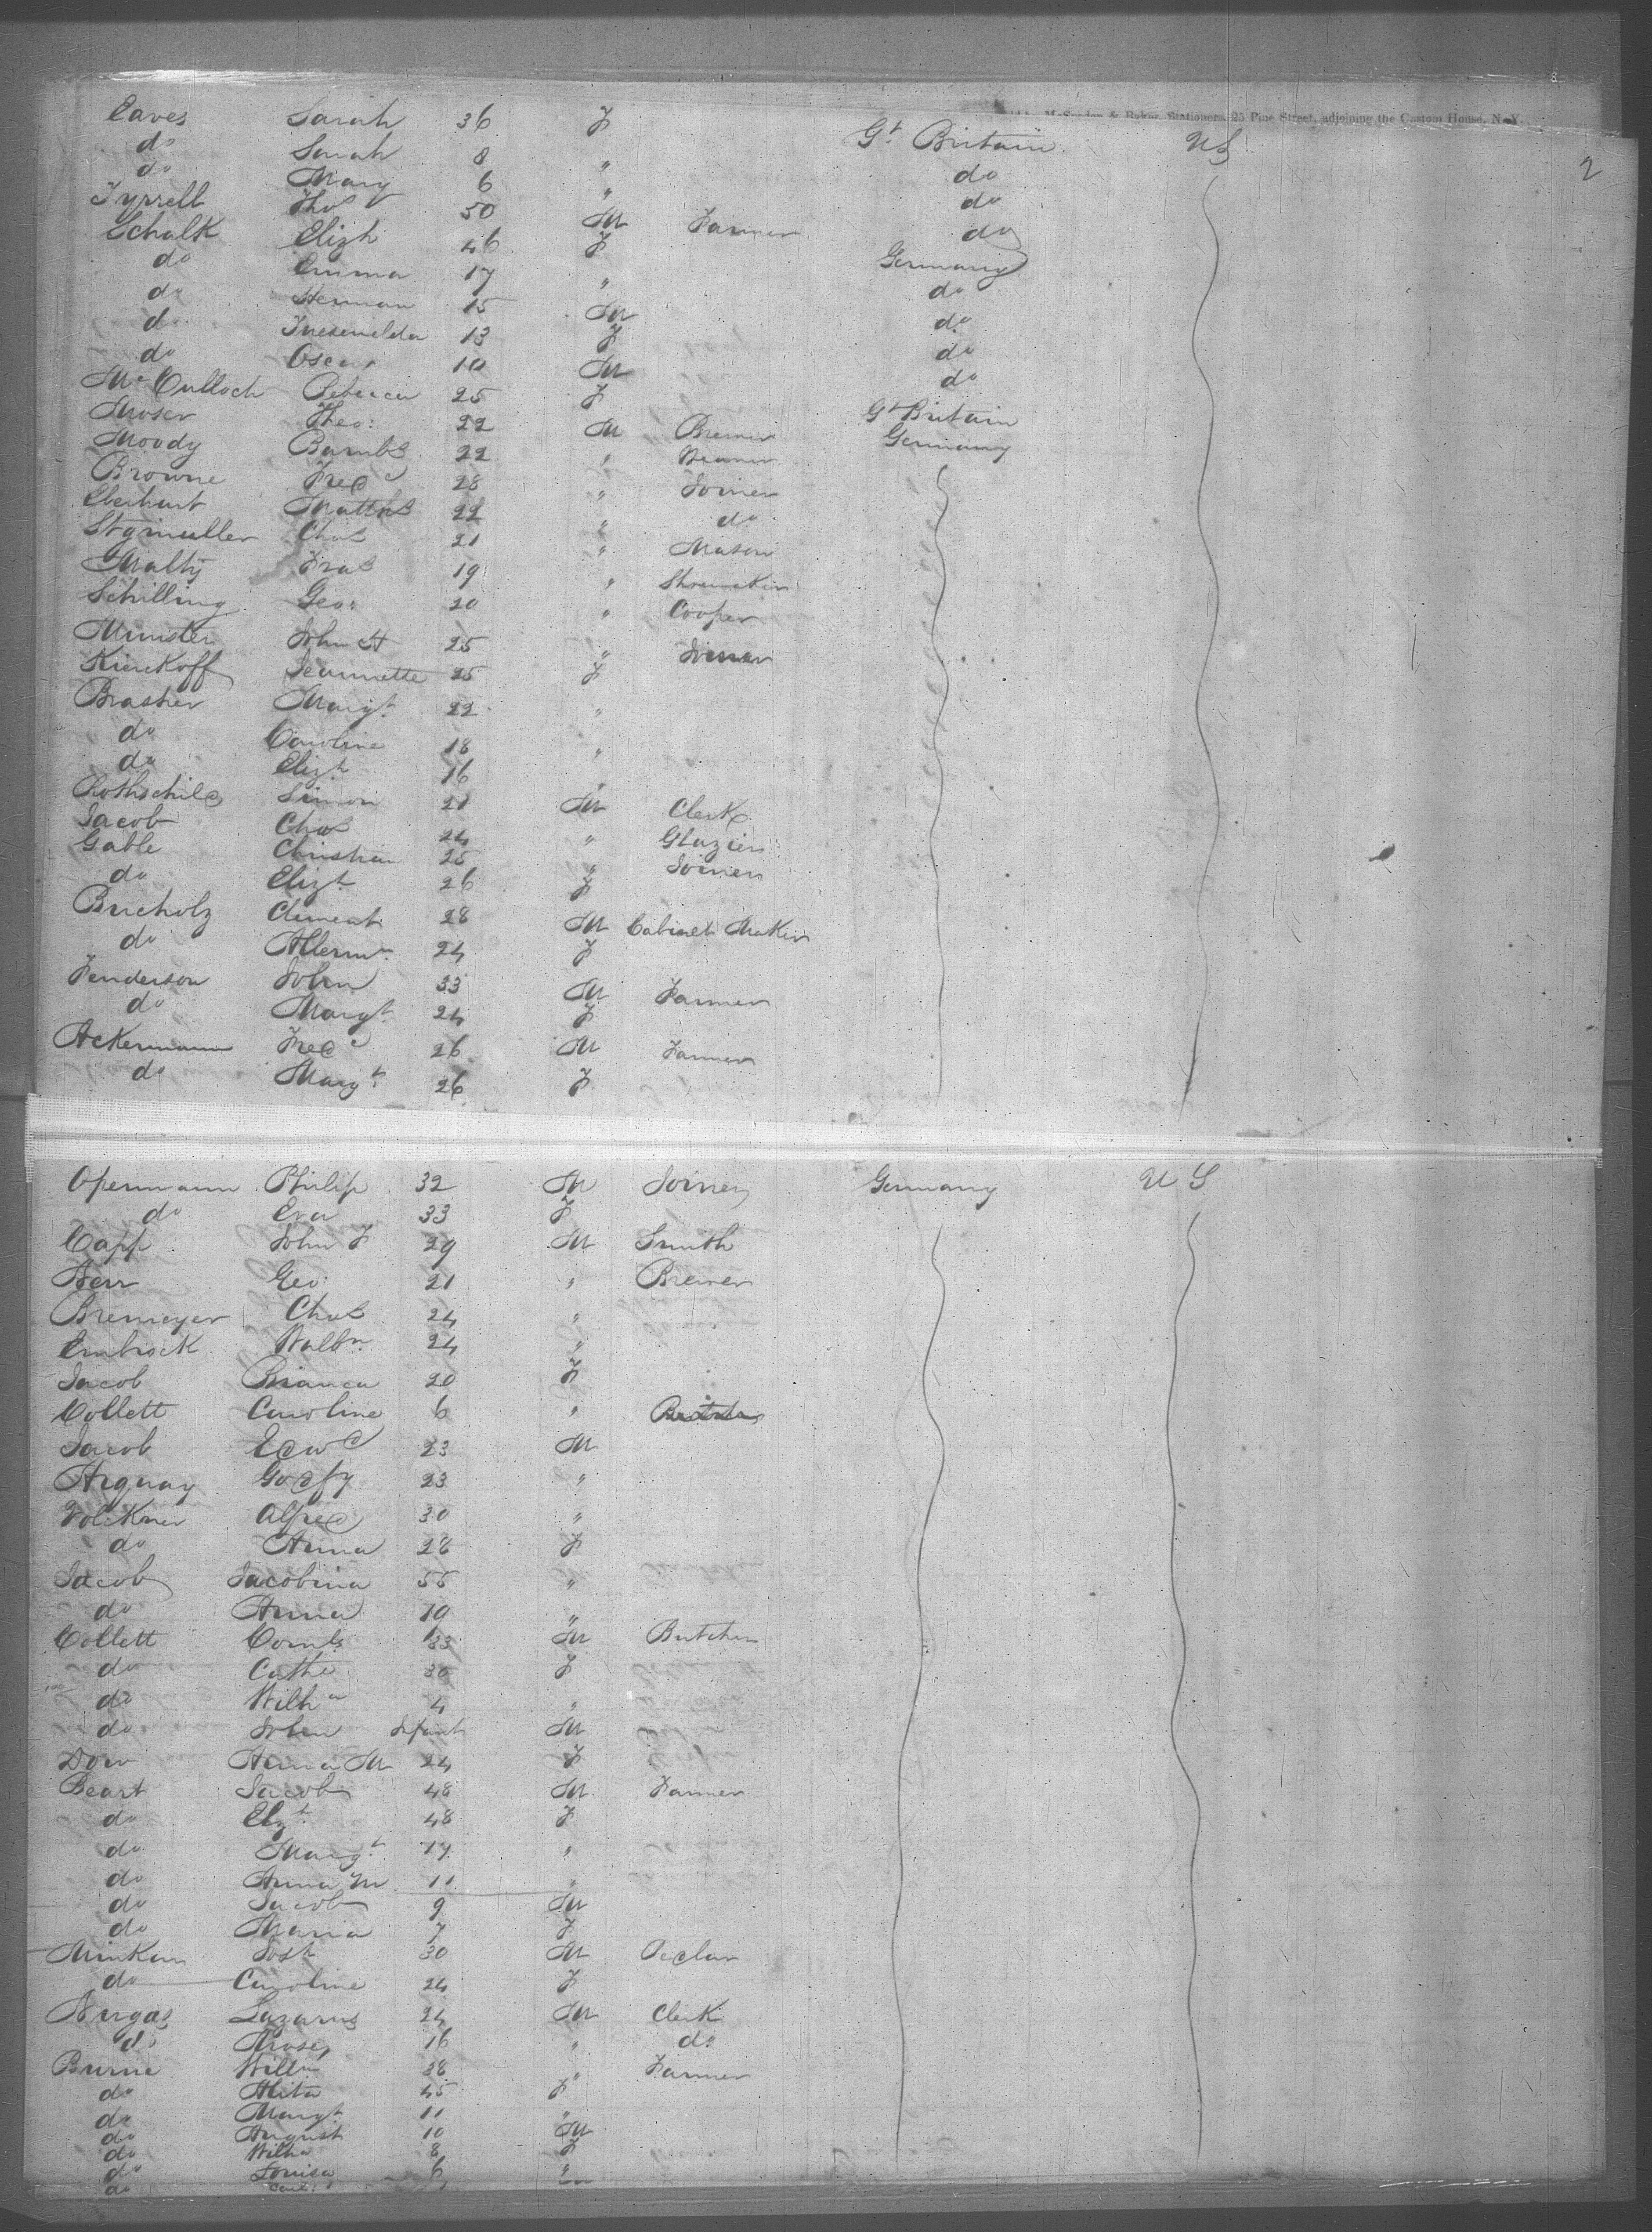 25 Pine Street, adjoining the Custom House, N.Y.
2
Eaves Sarah 36 F Gt Britain US
do Sarah 8 " do
do Mary 6 " do
Tyrrell Thos 50 M Farmer do
Schalk Elizh 46 F Germany
do Emma 17 " do
do Herman 15 M do
do 13 F do
do Oscar 10 M do
McCulloch Rebecca 25 F Gt Britain
Moser Theo: 22 M Brewer Germany
Moody 22 "
Browne Fred 28 " Joiner
Eberhart Matths 22 " do
Stgmuller Chas 21 " Mason
Malty Fras 19 " Shoemaker
Schilling Geo: 20 " Cooper
Munster John H 25 " Joiner
Kierkoff Jeannette 25 F
Brasher Margt 22 "
do Caroline 18 "
do Elizt 16 "
Rothschild Simon 21 M Clerk
Jacob Chas 24 " Glazier
Gable Christian 25 " Joiner
do Elizt 26 F
Bucholz Clement 28 M Cabinet Maker
do 24 F
Fenderson John 33 M Farmer
do Margt 24 F
Ackermann Fred 26 M Farmer
do Margt 26 F
Opermann Philip 32 M Joiner Germany U S
do Eva 33 F
Capp John F 29 M Smith
Geo: 21 " Brewer
Bremeyer Chas 24 "
Embrock 24 "
Jacob Bianca 20 F
Collett Caroline 6 "
Jacob Edwd 23 M
Arquay Godfy 23 "
Volckner Alfred 30 "
do Anna 28 F
Jacob Jacobina 55 "
do Anna 19 "
Collett Cornls 33 M Butcher
do Cathe 30 F
do Wilhn 4 "
do John Infant M
Dow Anna M 24 F
Beart Jacob 48 M Farmer
do Elzt 48 F
do Margt 14 "
do Anna M 11 "
do Jacob 9 M
do Maria 7 F
Jost 30 M
do Caroline 24 F
Lazarus 24 M Clerk
do Moses 16 " do
Burne Willm 38 " Farmer
do 45 F
do Margt 11 "
do August 10 M
do Wilhn 8 F
do Louisa 6 "
do